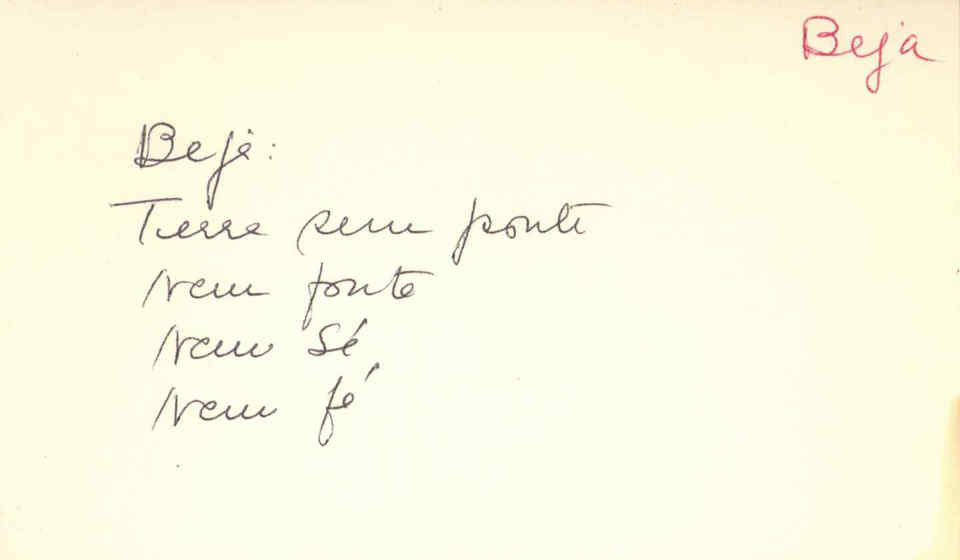 Beja
Beja:
Terra sem ponte
Nem fonte
Nem Sé
Nem fé